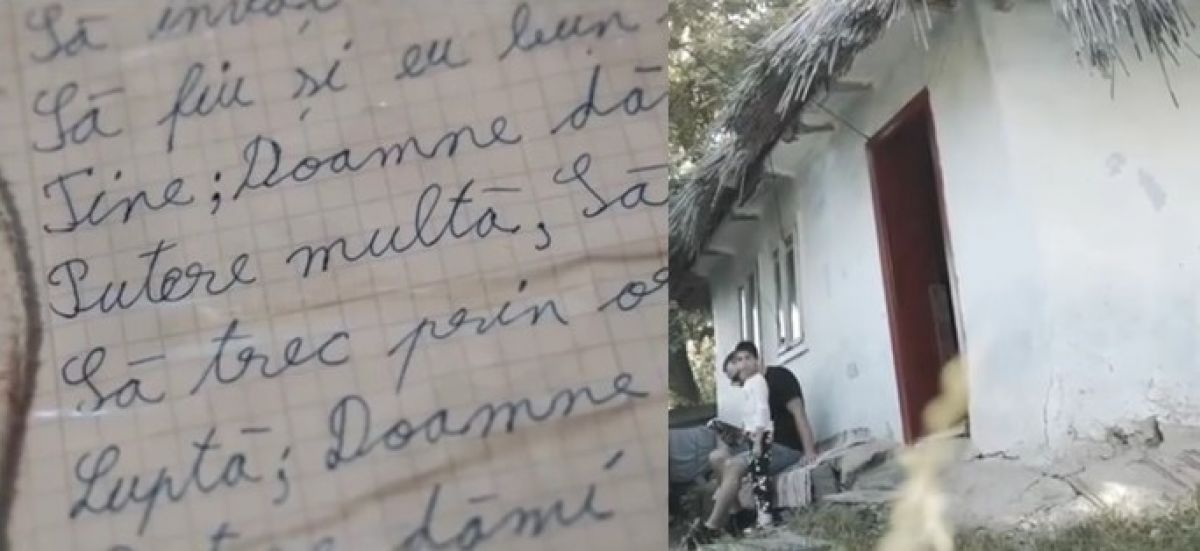 Să învăț
Să fiu și eu bun
Tine; Doamne dă
Putere multă, Să
Să trec prin
Luptă; Doamne
dămi